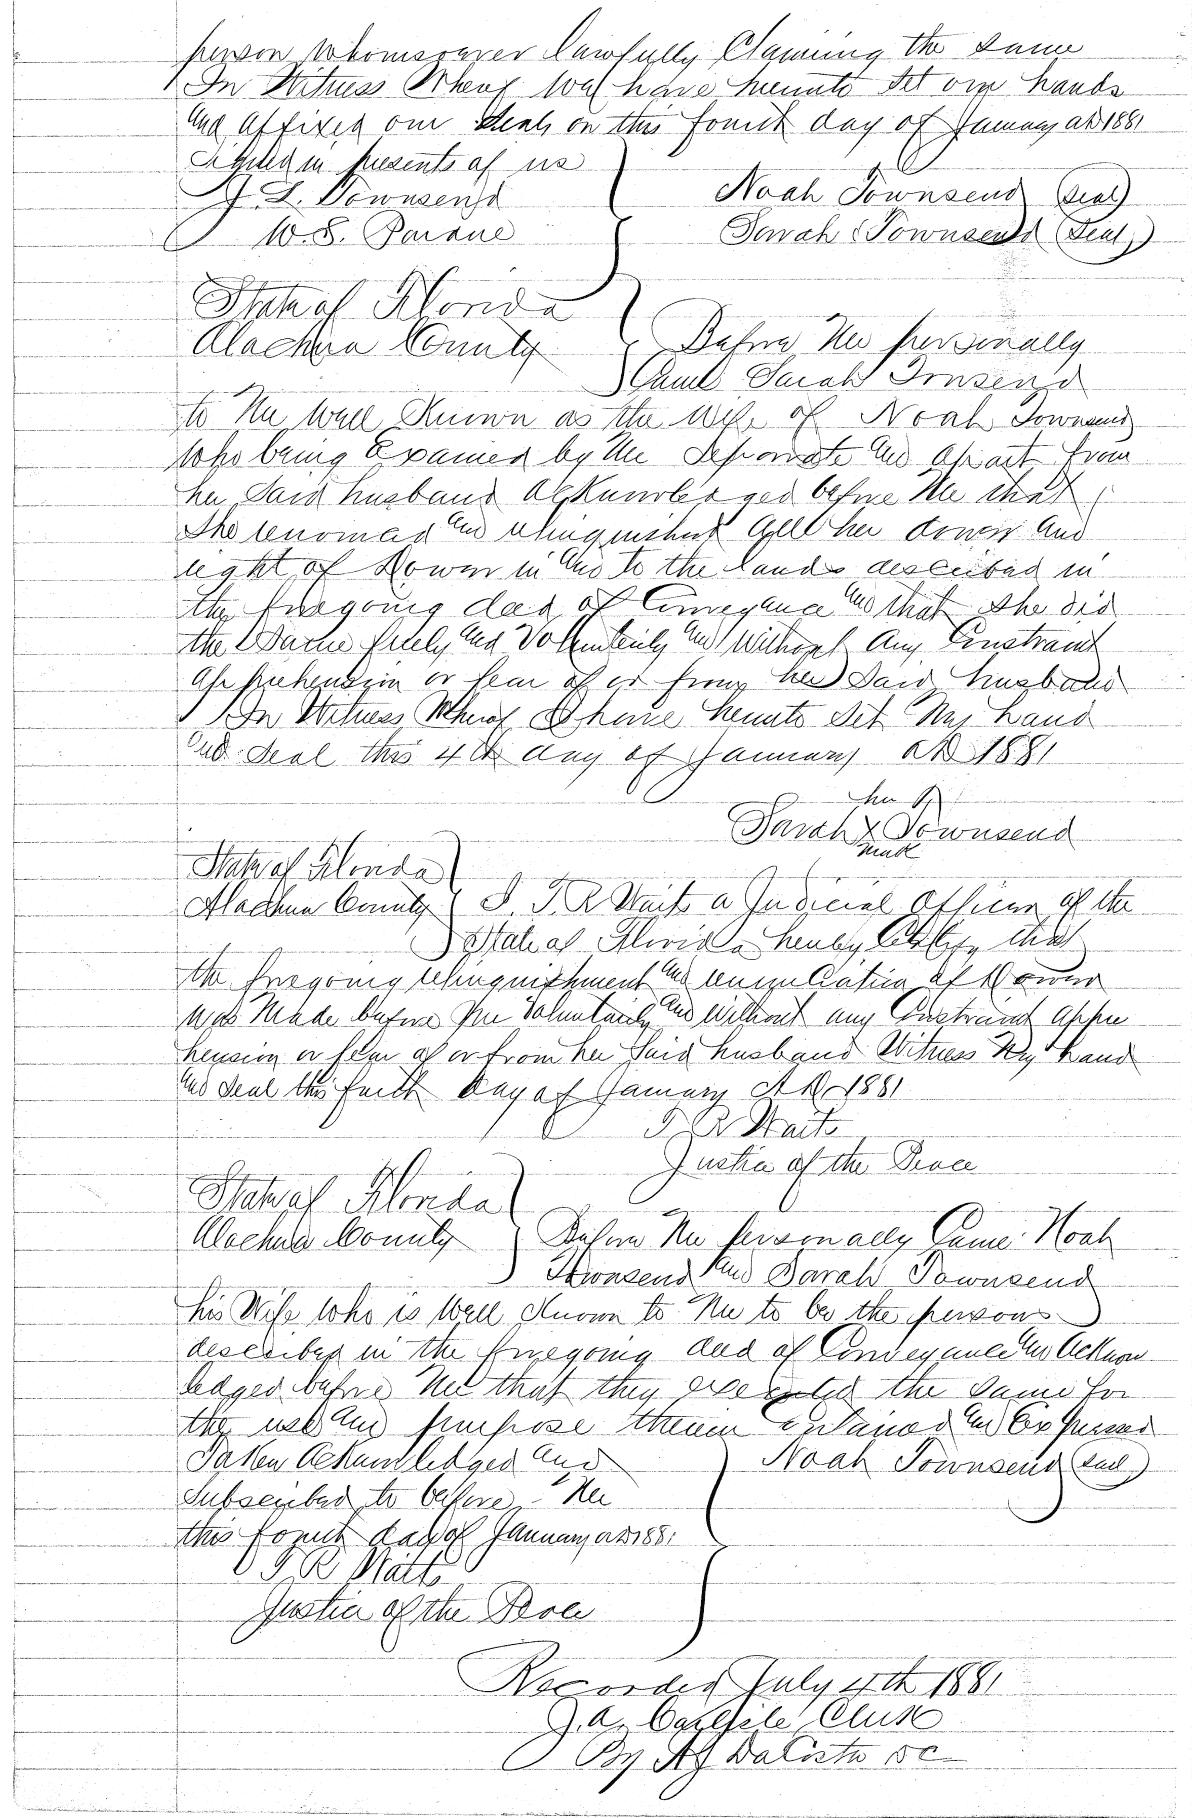 person whomsoever lawfully Claiming the same
In Witness Whereof We have hereunto Set our hands
and affixed our Seals on this fourth day of January AD 1881
Signed in presents of us
J. L. Townsend Noah Townsend (Seal)
W. S. Sarah Townsend (Seal)
State of Florida
Alachua County Before Me personally
Came Sarah Tonsend
to Me Well Known as the Wife of Noah Townsend
Who being Examined by Me Seperate and apart from
her Said husband acknowledged before Me that
She renounced and relinquished all her dower and
right of Dower in and to the lands described in
the foregoing deed of Conveyance and that She did
the Same freely and Voluntarily and Without any Constraint
apprehension or fear of or from her Said husband
In Witness Whereof I have hereunto Set My hand
and Seal this 4th day of January AD 1881
her
Sarah X Townsend
mark
State of Florida
Alachua County I. T. R Waits a Judicial Officer of the
State of Florida hereby Certify that
the foregoing relinquishment and renunciation of Dower
was Made before Me Voluntarily and Without any Constraint Appre
hension or fear of or from her Said husband Witness My hand
and Seal this forth day of January AD 1881
T R Waits
Justice of the Peace
State of Florida
Alachua County Before Me personally Came Noah
Townsend and Sarah Townsend
his Wife Who is Well Known to Me to be the persons
described in the foregoing deed of Conveyance and Acknow
ledged before Me that they executed the Same for
the use and purpose therein Contained and Expressed
Taken Acknowledged and Noah Townsend (Seal)
Subscribed to before Me
this fourth day of January AD 1881
T R Waits
Justice of the Peace
Recorded July 4th 1881
J. A. Carlisle Clerk
By DC